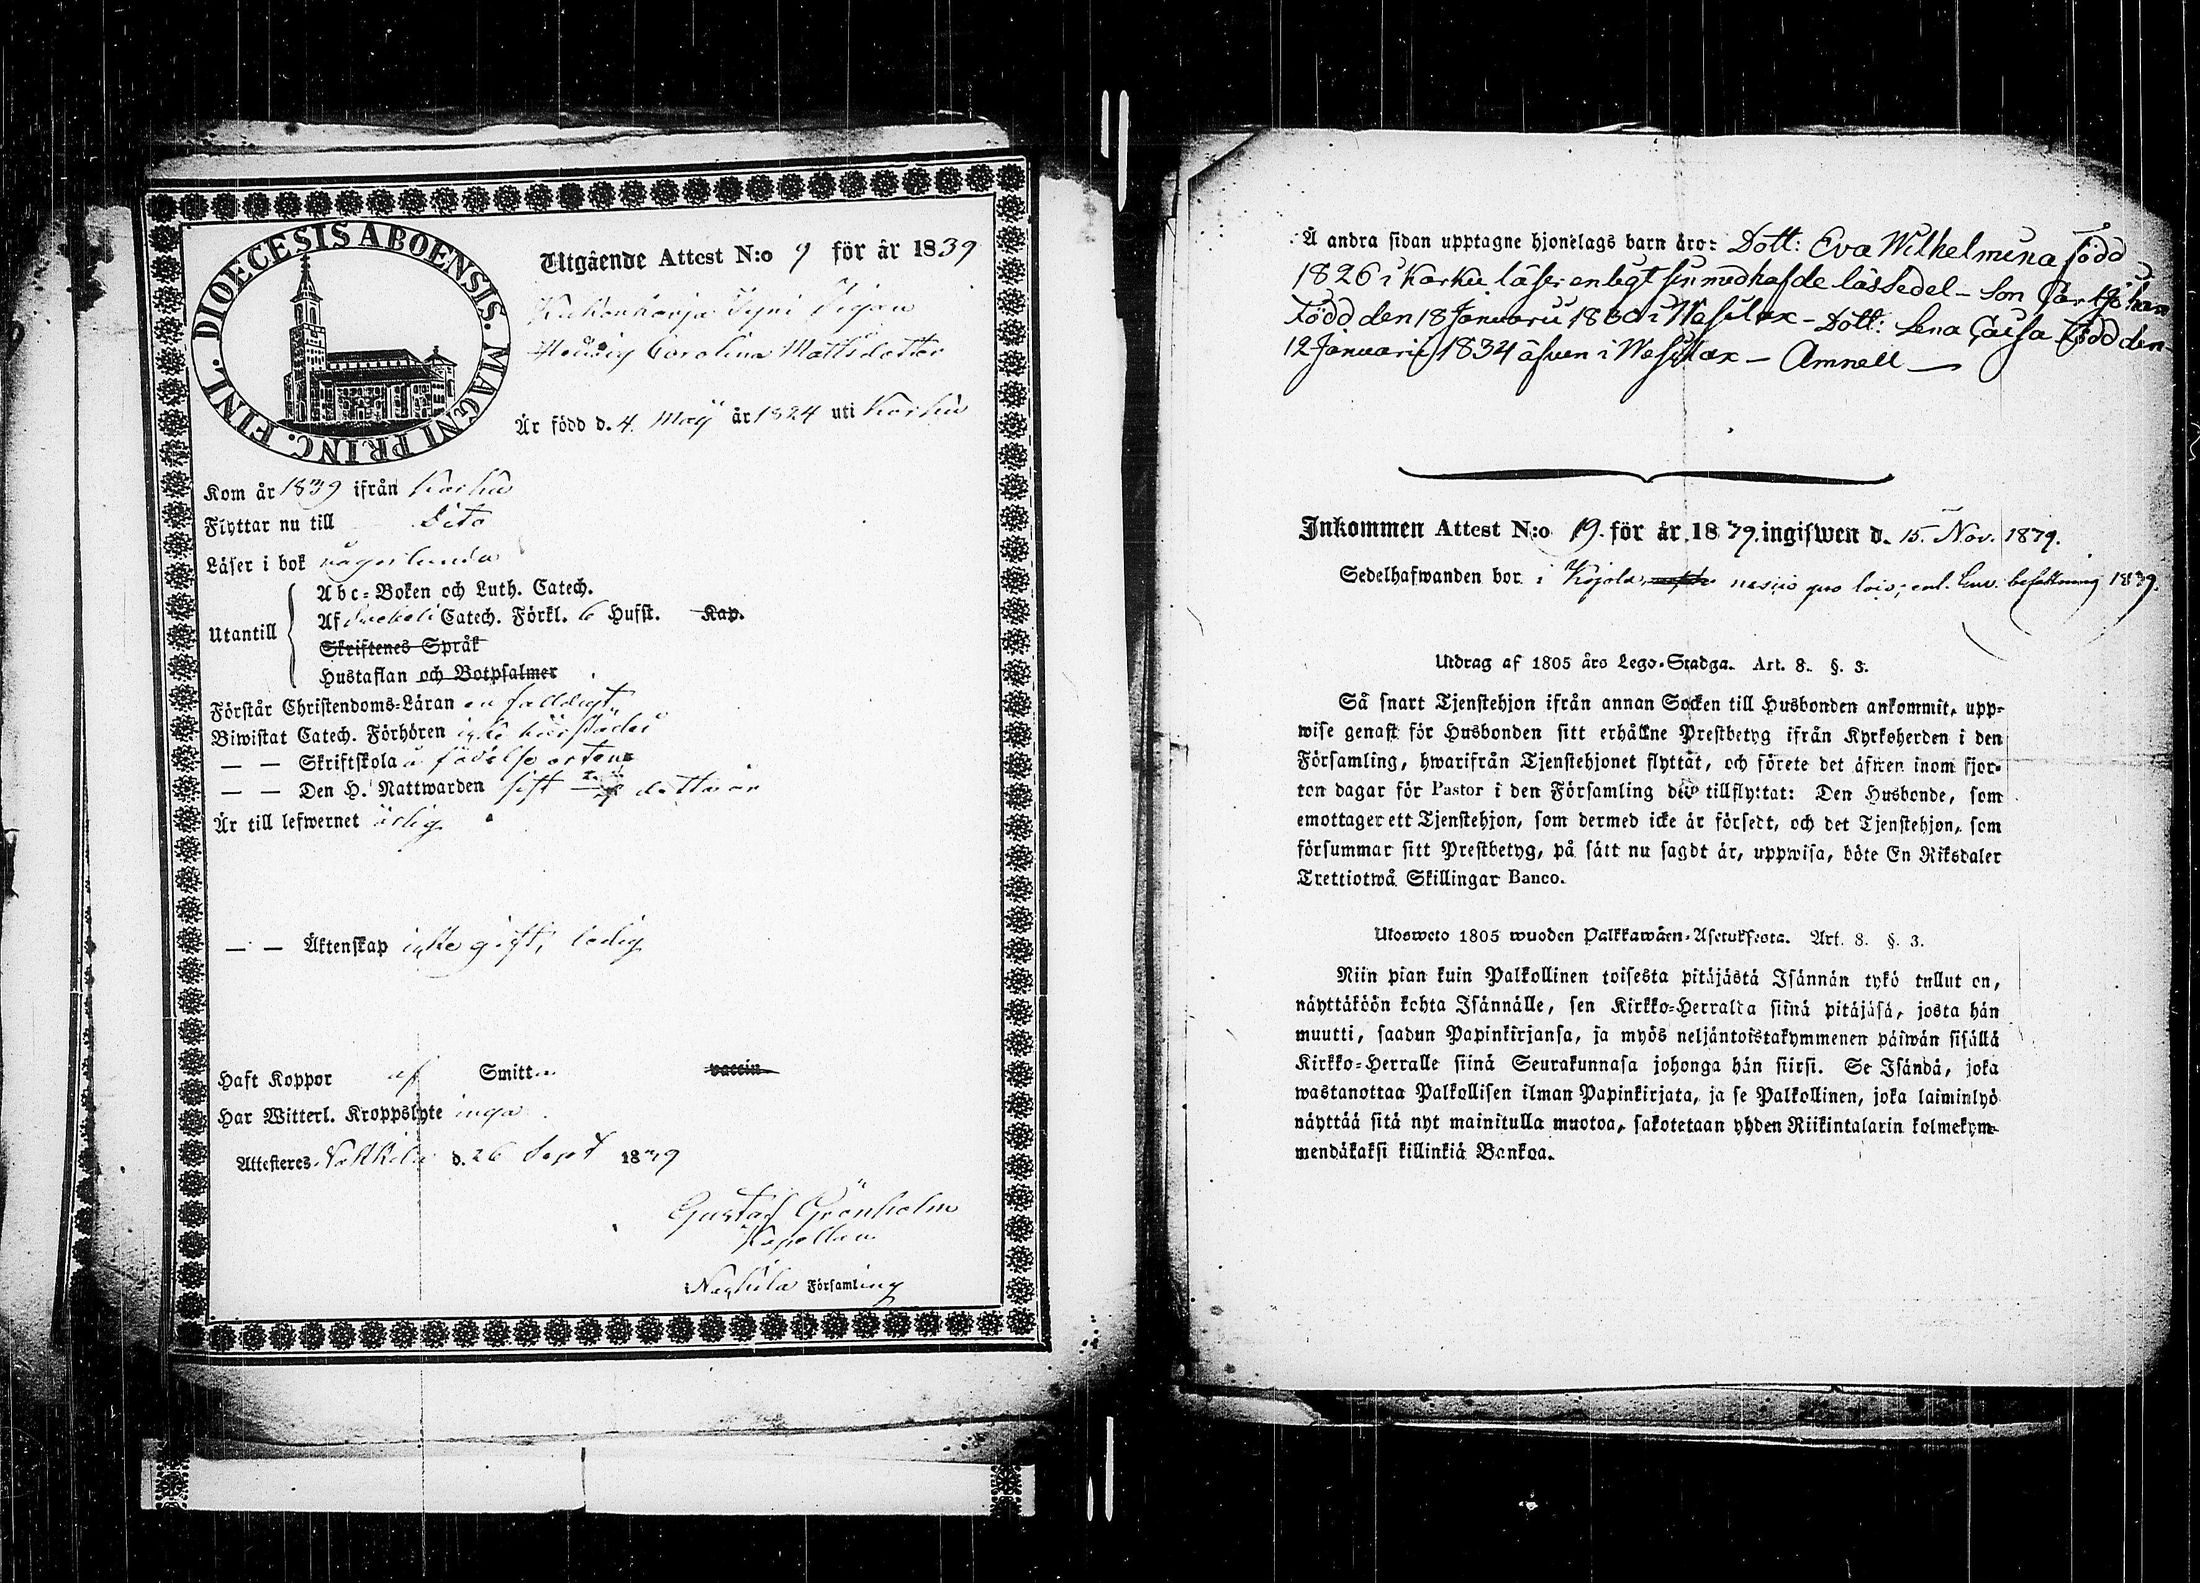 DIOECESIS ABOENSIS. MAGNI PRINC. FINL.
Utgående Attest N:o 9 för år 1839
Pigan
Hedvig Carolina Mattsdotter
Är född d. 4. Maij år 1824 uti Karku
Kom år 1839 ifrån Karku
Flyttar nu till Dito
Läser i bok någorlunda
Utantill
Abc-Boken och Luth. Catech.
Af Svebelii Catech. Förkl. 6 Hufst. Kap.
Skriftenes Språk
Hustaflan och Botpsalmer
Förstår Christendoms-Läran enfalldigt
Biwistat Catech. Förhören icke härstädes
— — Skriftskola å födelse orten
— — Den H. Nattwarden sist detta år
Är till lefwernet ärlig
— — Äktenskap icke gift, ledig
Haft Koppor af Smitta vaccin
Har Witterl. Kroppslyte inga
Attesteres Nakkila d. 26 Sept 1839
Gustaf Grönholm
Kapellan
Nakkila Församling
Å andra sidan upptagne hjonelags barn äro: Dott: Eva Wilhelmina född
1826 i Karku läser enligt sin medhafde lässedel – Son Carl Johan
Född den 18 Januarii 1830 i Wesilax – Dott: Lena Cajsa Född den
12 Januarii 1834 äfven i Wesilax – Amnell —
Inkommen Attest N:o 19. för år 1839. ingifwen d. 15. Nov. 1839.
Sedelhafwanden bor i Kojola, nescio quo loco; enl. befattning 1839.
Utdrag af 1805 års Lego-Stadga. Art. 8. §. 3.
Så snart Tjenstehjon ifrån annan Socken till Husbonden ankommit, upp-
wise genast för Husbonden sitt erhållne Prestbetyg ifrån Kyrkoherden i den
Församling, hwarifrån Tjenstehjonet flyttat, och förete det äfven inom fjor-
ton dagar för Pastor i den Församling det tillflyttat: Den Husbonde, som
emottager ett Tjenstehjon, som dermed icke är försedt, och det Tjenstehjon, som
försummar sitt Prestbetyg, på sätt nu sagdt är, uppwisa, böte En Riksdaler
Trettiotwå Skillingar Banco.
Ulosweto 1805 wuoden Palkkawäen-Asetuksesta. Art. 8. §. 3.
Niin pian kuin Palkollinen toisesta pitäjästä Isännän tykö tullut on,
näyttäköön kohta Isännälle, sen Kirkko-Herralta siinä pitäjäsä, josta hän
muutti, saadun Papinkirjansa, ja myös neljäntoistakymmenen päiwän sisällä
Kirkko-Herralle siinä Seurakunnasa johonga hän siirsi. Se Isändä, joka
wastanottaa Palkollisen ilman Papinkirjata, ja se Palkollinen, joka laiminlyö
näyttää sitä nyt mainitulla muotoa, sakotetaan yhden Riikintalarin kolmekym-
mendäkaksi killinkiä Bankoa.